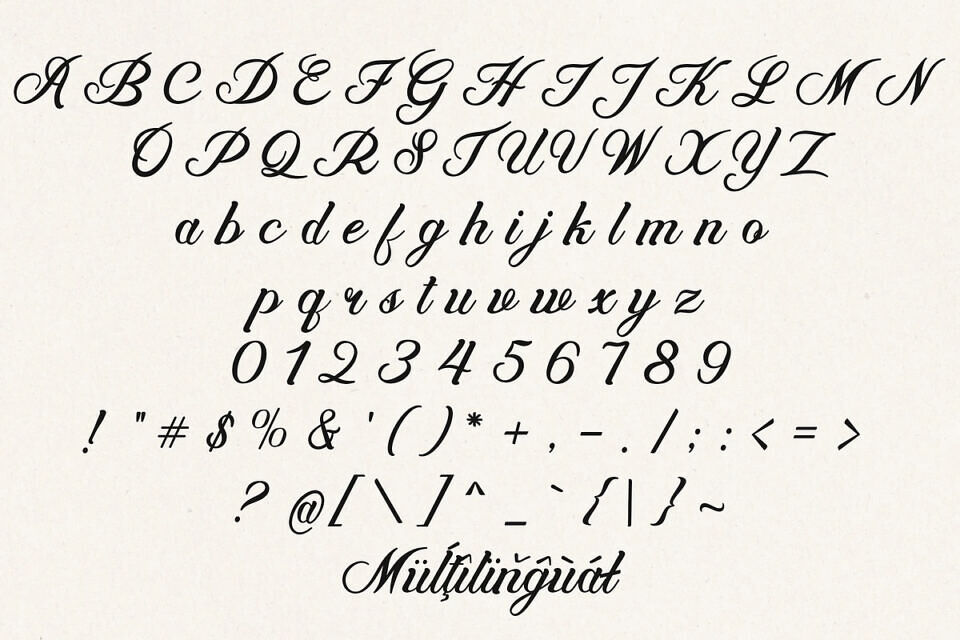 A B C D E F G H I J K L M N
O P Q R S T U V W X Y Z
a b c d e f g h i j k l m n o
p q r s t u v w x y z
0 1 2 3 4 5 6 7 8 9
! " # $ % & ' ( ) * + , - . / ; : < = >
? @ [ \ ] ^ _ ` { | } ~
Müĺţîlïňĝùáł